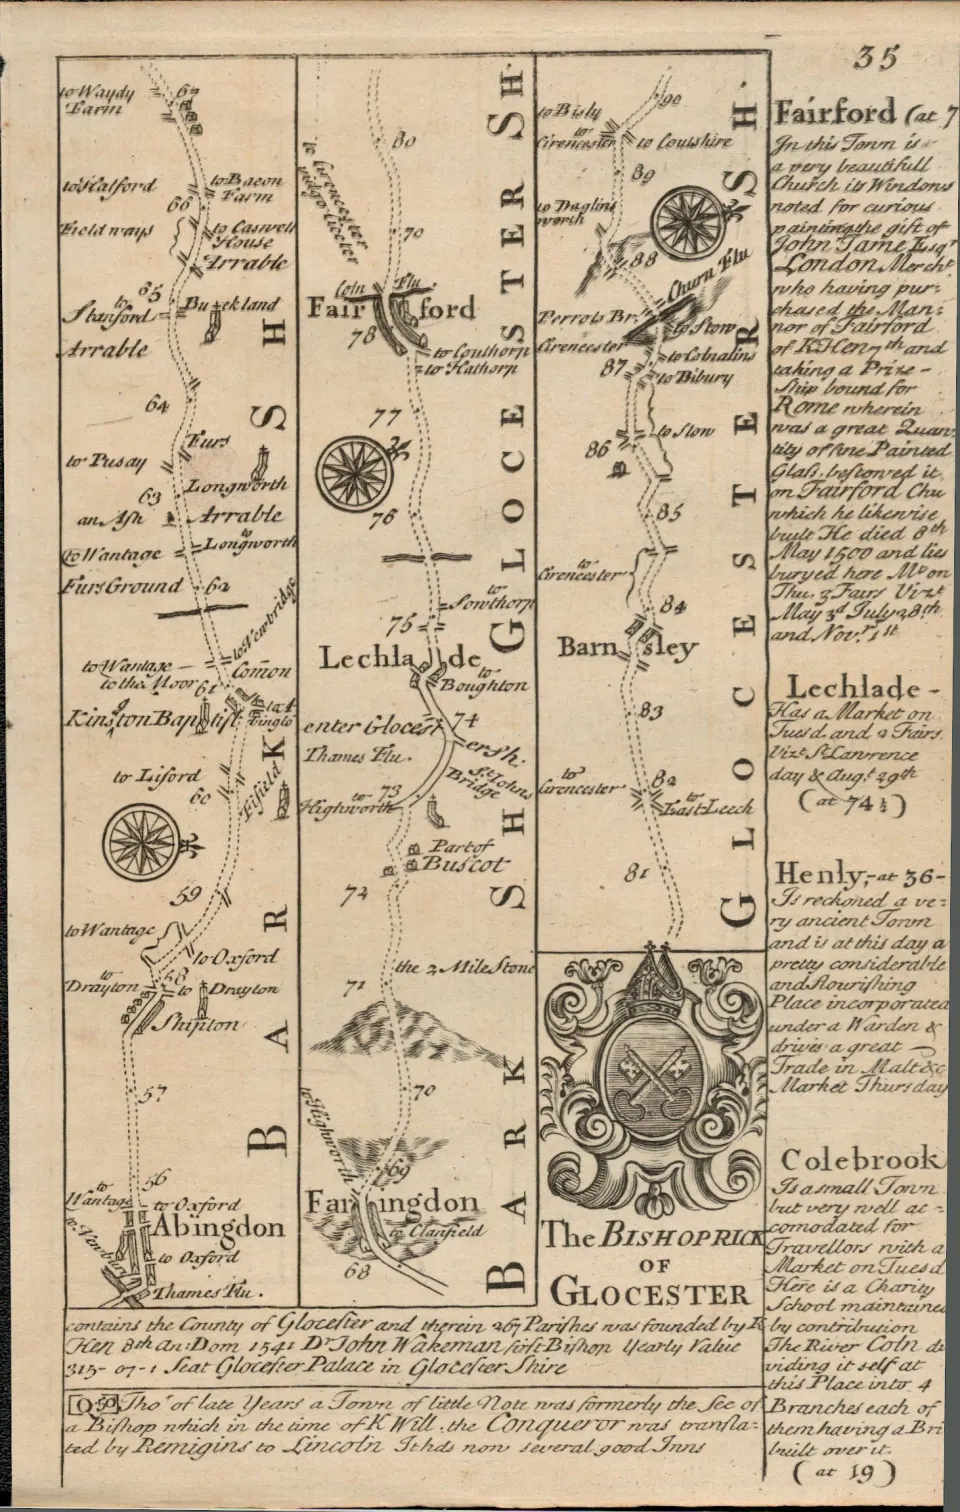 35
to Waydy
Farm
67
to Hatford
to Bacon
Farm
66
Field ways
to Caswell
House
Arrable
65
to
Stanford
Buckland
Arrable
64
Furs
to Pusay
Longworth
63
an Ash
Arrable
to Wantage
Longworth
Furs Ground
62
to Newbridge
to Wantage
Comon
to the Moor
61
Kingston Baptist
to Liford
60
Fifield
59
to Wantage
to Oxford
to
Drayton
58
to Drayton
Shipton
57
56
to
Wantage
to Oxford
Abingdon
to Newbury
to Oxford
Thames Flu.
BARK SH
80
to Cirencester
79
Coln Flu
Fairford
78
to Couthorp
to Hathorp
77
76
to
Sowthorp
75
Lechlade
to
Boughton
74
enter Glocestersh.
Thames Flu.
St. Johns
Bridge
73
to
Highworth
Part of
Buscot
72
the 2 Mile Stone
71
70
to Highworth
69
Farringdon
to Clanfield
68
GLOCESTER SH.
BARK SH
90
to Bisly
to
Cirencester
to Coutshire
89
to Daglins
worth
88
Churn Flu
Perrots Br.
to Stow
Cirencester
to Cobnalins
87
to Bibury
86
to Stow
85
to
Cirencester
84
Barnsley
83
82
to
Cirencester
to
East Leech
81
GLOCESTER SH.
The BISHOPRICK
OF
GLOCESTER
contains the County of Glocester and therein 267 Parishes was founded by K
Hen 8th An: Dom 1541 Dr John Wakeman first Bishop Yearly Value
315-07-1 Seat Glocester Palace in Glocester Shire
Tho' of late Years a Town of little Note was formerly the See of
a Bishop which in the time of K Will. the Conqueror was transla-
ted by Remigins to Lincoln It has now several good Inns
Fairford (at 7
In this Town is
a very beautifull
Church its Windows
noted for curious
painting the gift of
John Tame Esqr
London Mercht
who having pur-
chased the Man-
nor of Fairford
of K Hen 7th and
taking a Prize-
Ship bound for
Rome wherein
was a great Quan
tity of fine Painted
Glass bestowed it
on Fairford Chu
which he likewise
built He died 8th
May 1500 and lies
buryed here Mt on
Thu. 3 Fairs Vizt
May 3d July 28th
and Novr 1st
Lechlade-
Has a Market on
Tuesd. and 2 Fairs
Vizt St Lawrence
day & Augt 29th
(at 74½)
Henly,-at 36-
Is reckoned a ve-
ry ancient Town
and is at this day a
pretty considerable
and flourishing
Place incorporated
under a Warden &
drives a great
Trade in Malt &c
Market Thursday
Colebrook
Is a small Town
but very well ac-
comodated for
Travellors with a
Market on Tuesd
Here is a Charity
School maintained
by contribution
The River Coln di
viding it self at
this Place into 4
Branches each of
them having a Bri
built over it.
(at 19)